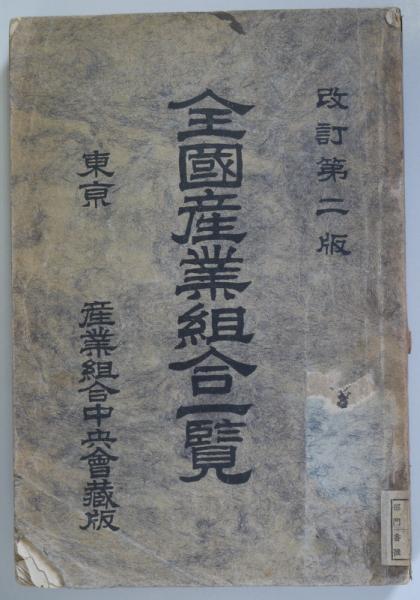 改訂第二版
全國産業組合一覧
東京
産業組合中央會藏版
部門番號